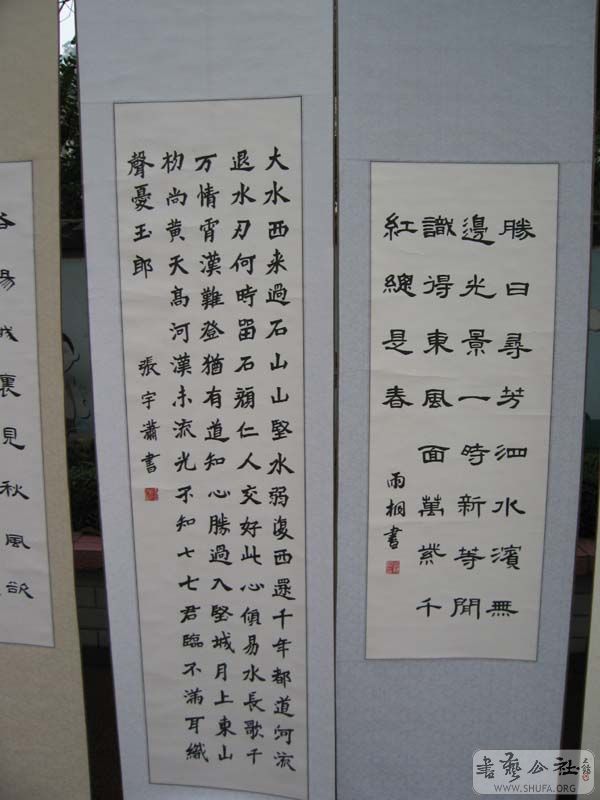 勝日尋芳泗水濱無
邊光景一時新等閒
識得東風面萬紫千
紅總是春
雨桐書
大水西来過石山山堅水弱復西還千年都道河流
退水刃何時留石頑仁人交好此心傾易水長歌千
万情霄漢難登猶有道知心勝過入堅城月上東山
尚黄天高河漢未流光不知七七君臨不滿耳織
聲憂玉郎
張宇瀟書
裏見秋風欲
書藝公社
WWW.SHUFA.ORG